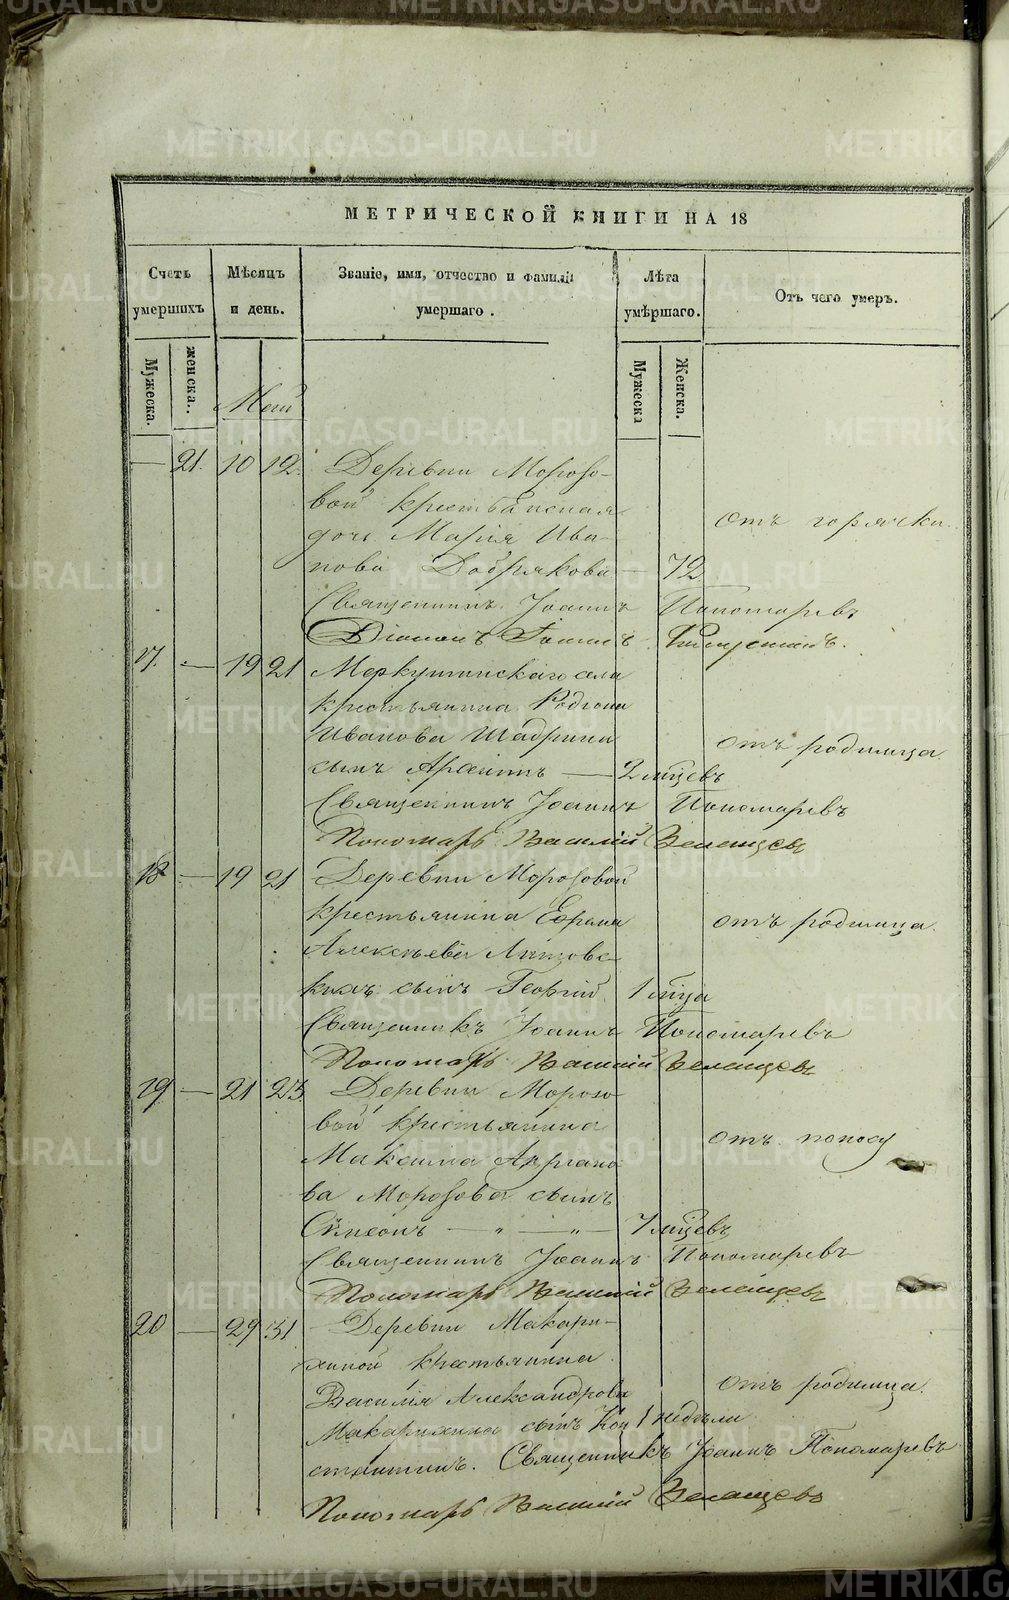 METRIKI.GASO-URAL.RU
МЕТРИЧЕСКОЙ КНИГИ НА 18
Счетъ умершихъ
Мѣсяцъ и день.
Званіе, имя, отчество и фамилія умершаго.
Лѣта умѣршаго.
Отъ чего умеръ.
Мужеска.
женска.
Мужеска
Женска.
Май
— 21. 10 12. Деревни Морозо-
вой крестьянская
дочь Марія Ива-
нова Добрякова — 72 отъ горячки.
Священникъ Іоаннъ Пономаревъ
Діаконъ Іоаннъ
17. — 19 21 Меркушинскаго села
крестьянина Родіона
Иванова Шадрина отъ родимца.
сынъ Арсеній — 2 мцевъ
Священникъ Іоаннъ Пономаревъ
Пономарь Василій Зеленцовъ
18 — 19 21 Деревни Морозовой
крестьянина Ефрема отъ родимца.
Алексѣева
кихъ сынъ Георгій. 1 мца
Священникъ Іоаннъ Пономаревъ
Пономарь Василій Зеленцовъ
19. — 21 23. Деревни Морозо-
вой крестьянина отъ поносу
Максима
ва Морозова сынъ
Сѵмеонъ — „ — „ — 7 мцевъ
Священникъ Іоаннъ Пономаревъ
Пономарь Василій Зеленцовъ
20 — 29 31 Деревни Макари-
хиной крестьянина
Василія Александрова отъ родимца.
Макарихина сынъ Кон 1 недѣли
стантинъ. Священникъ Іоаннъ Пономаревъ
Пономарь Василій Зеленцовъ